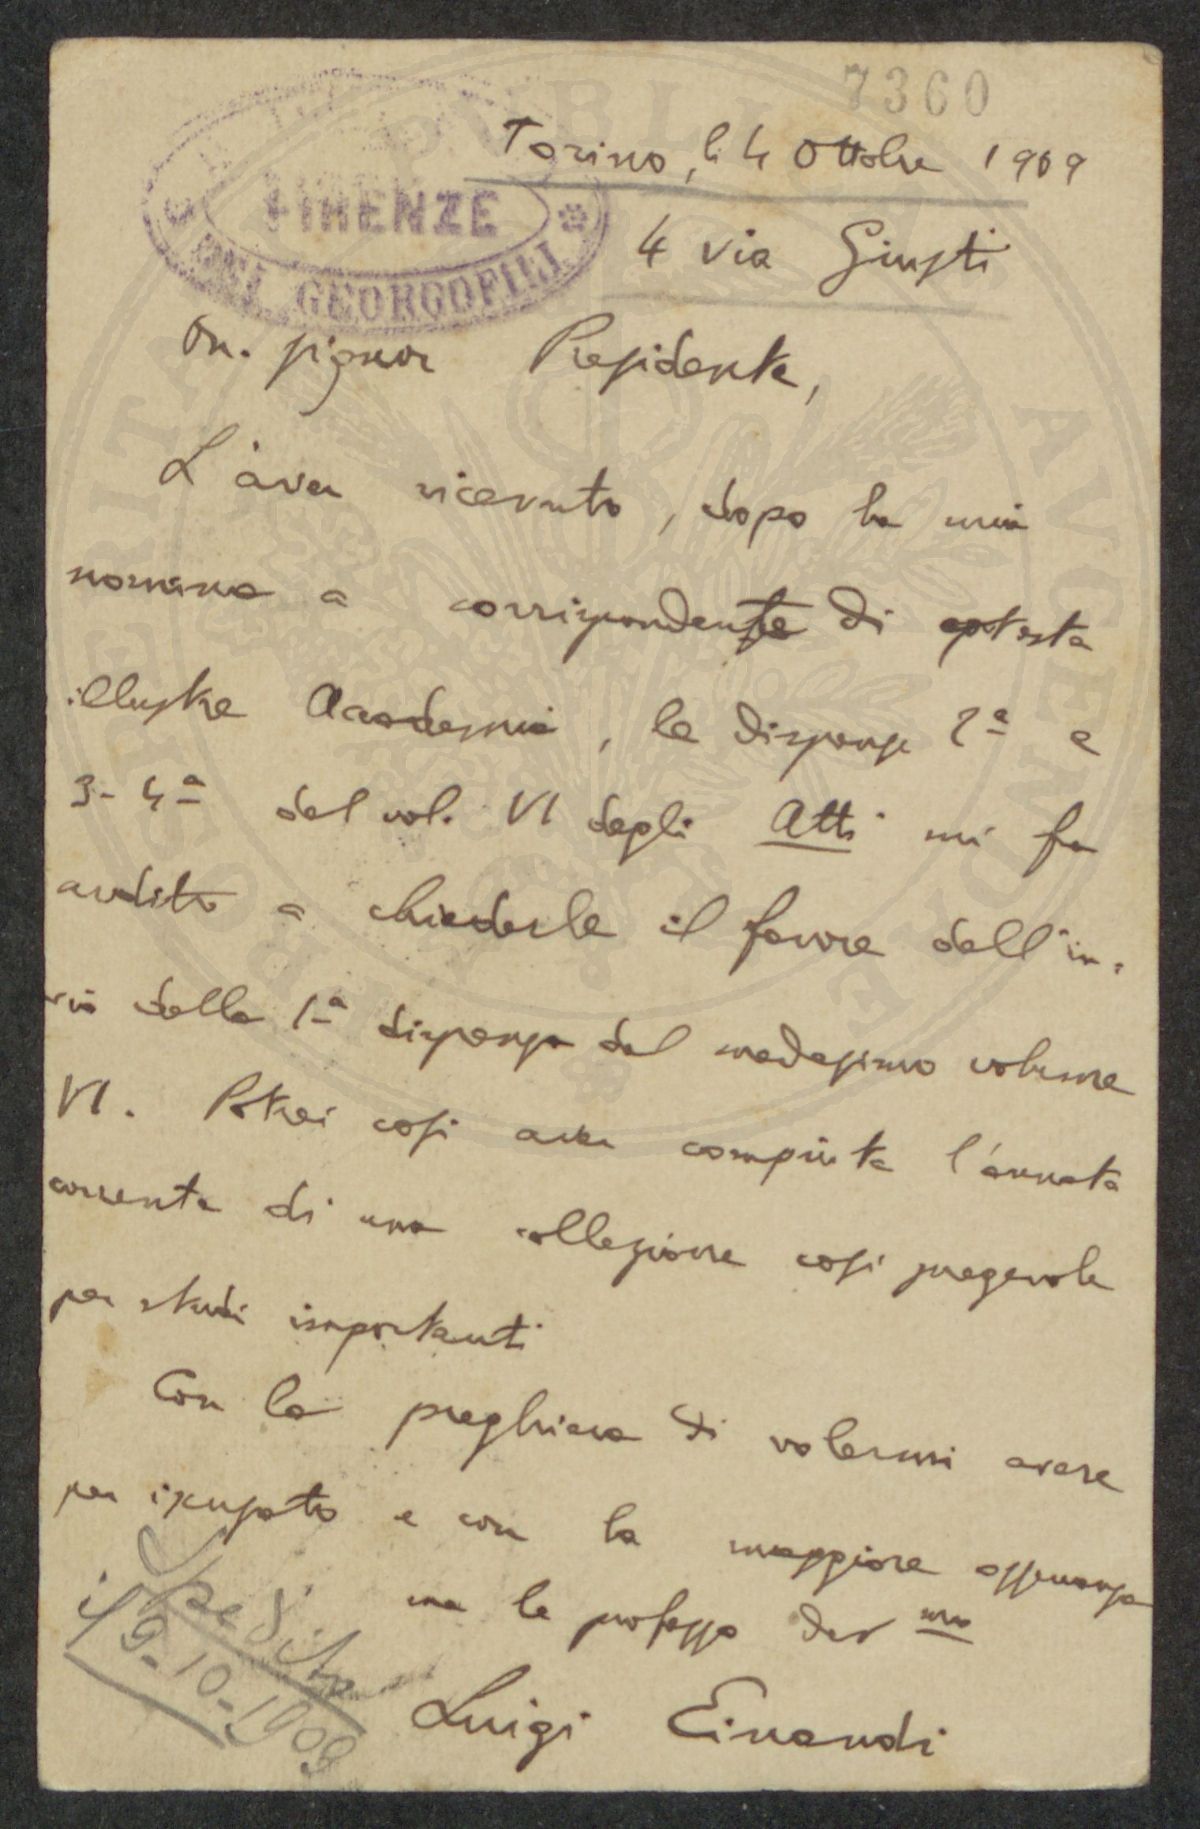 7360
Torino, li 4 Ottobre 1909
FIRENZE
DEI GEORGOFILI
4 via Giusti
On. signor Presidente,
L'aver ricevuto, dopo la mia
nomina a corrispondente di codesta
illustre Accademia, le dispense 2ª e
3-4ª del vol. VI degli Atti mi fa
ardito a chiederle il favore dell'in-
vio della 1ª dispensa del medesimo volume
VI. Potrei così aver compiuta l'annata
corrente di una collezione così pregevole
per studi importanti
Con la preghiera di volermi avere
per iscusato e con la maggiore osservanza
me le professo dev mo
Luigi Einaudi
Spedita
il 9-10-1909